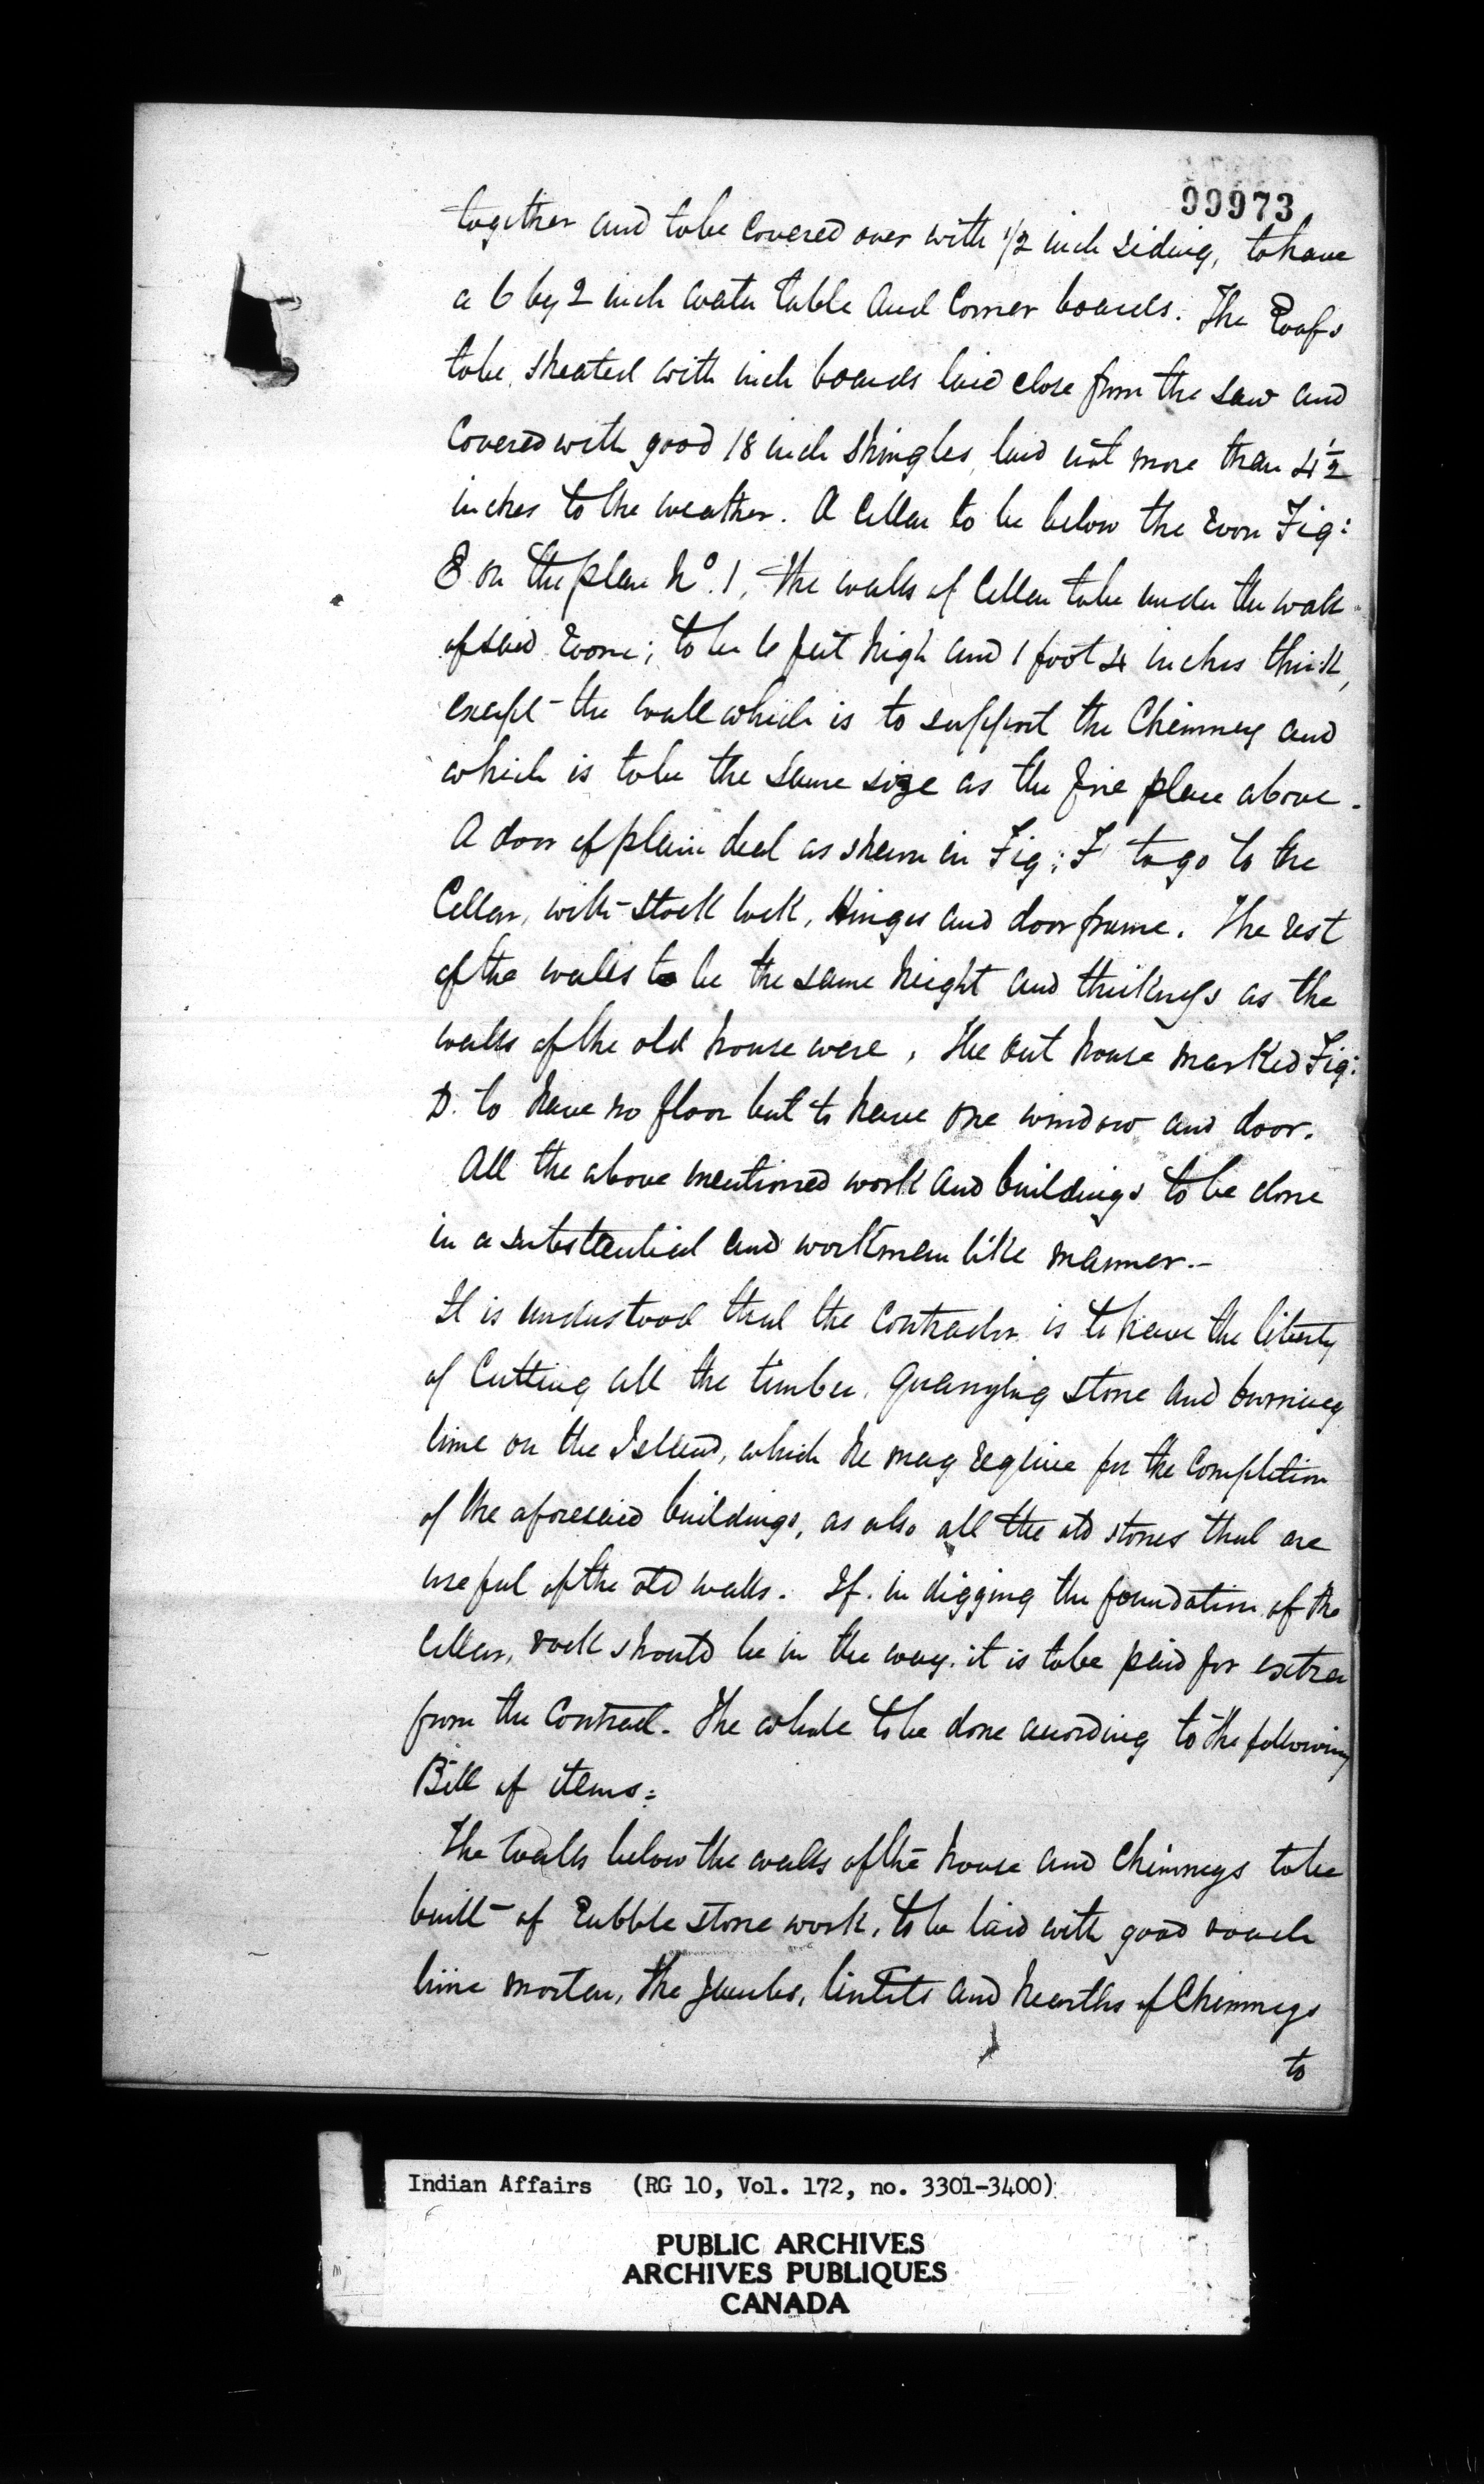 99973
together and to be Covered over with 1/2 inch siding, to have
a 6 by 2 inch water table and Corner boards. The Roofs
to be sheated with inch boards laid close from the saw and
Covered with good 18 inch shingles, laid not more than 4 1/2
inches to the weather. A Cellar to be below the room Fig:
E on the plan No. 1, the walls of Cellar to be under the wall
of said room; to be 6 feet high and 1 foot 4 inches thick,
except the wall which is to support the Chimney and
which is to be the same size as the fire place above.
A door of plain deal as shewn in Fig: F to go to the
Cellar, with stock lock, Hinges and door frame. The rest
of the walls to be the same height and thickness as the
walls of the old house were, the out house marked Fig:
D. to have no floor but to have one window and door.
All the above mentioned work and buildings to be done
in a substantial and workman like manner.-
It is understood that the Contractor is to have the liberty
of Cutting all the timber, Quarrying stone and burning
lime on the Island, which he may require for the Completion
of the aforesaid buildings, as also all the old stones that are
useful of the old walls. If in digging the foundation of the
Cellar, rock should be in the way, it is to be paid for extra
from the Contract. The whole to be done according to the following
Bill of items:
The walls below the walls of the house and Chimneys to be
built of Rubble stone work, to be laid with good roach
lime mortar, the Jambs, lintels and hearths of Chimneys
to
Indian Affairs (RG 10, Vol. 172, no. 3301-3400)
PUBLIC ARCHIVES
ARCHIVES PUBLIQUES
CANADA